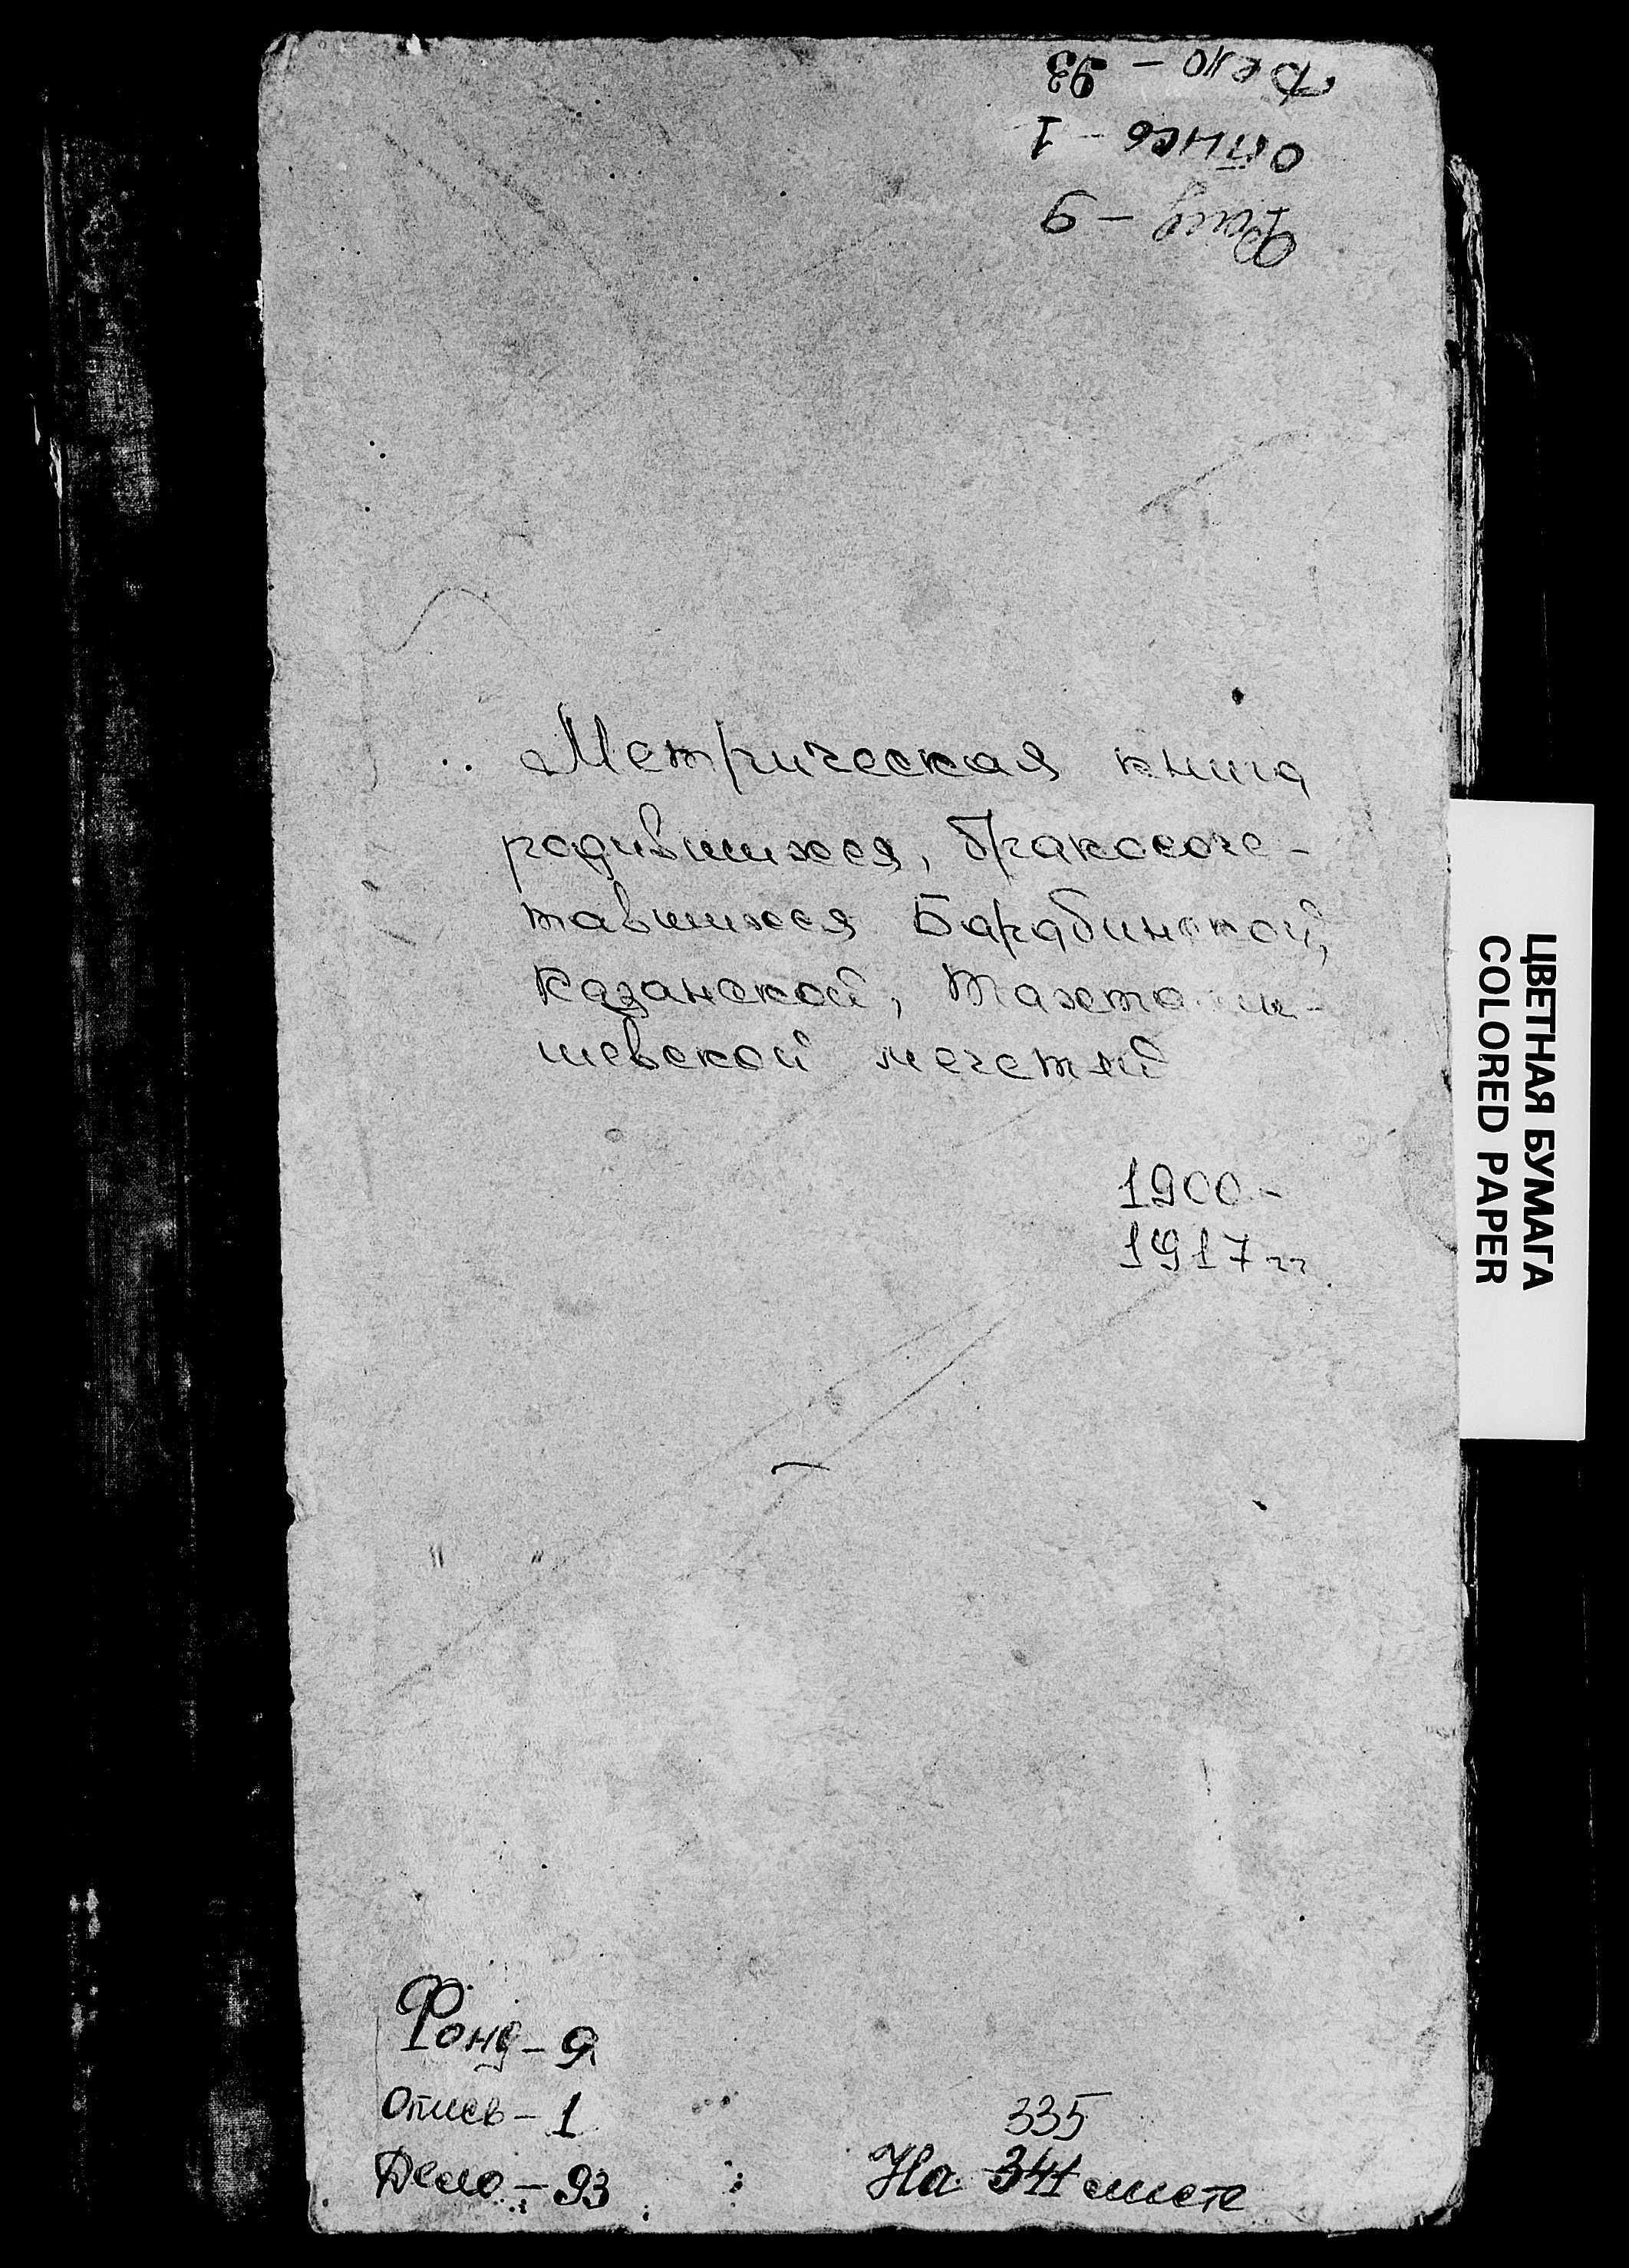 Дело - 93
Опись - 1
Фонд - 9
Метрическая книга
родившихся, бракосоче-
тавшихся Барабинской,
Казанской,
шевской мечетий
1900 -
1917 гг.
ЦВЕТНАЯ БУМАГА
COLORED PAPER
Фонд - 9
Опись - 1
Дело - 93
335
На 341 листе